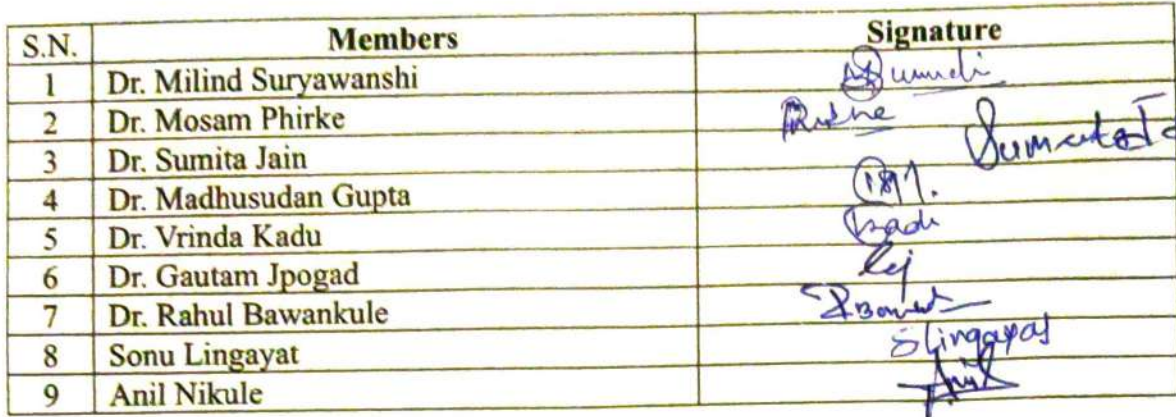 S.N. Members Signature
1 Dr. Milind Suryawanshi
2 Dr. Mosam Phirke
3 Dr. Sumita Jain
4 Dr. Madhusudan Gupta
5 Dr. Vrinda Kadu
6 Dr. Gautam Jpogad
7 Dr. Rahul Bawankule
8 Sonu Lingayat SLingayat
9 Anil Nikule Anil